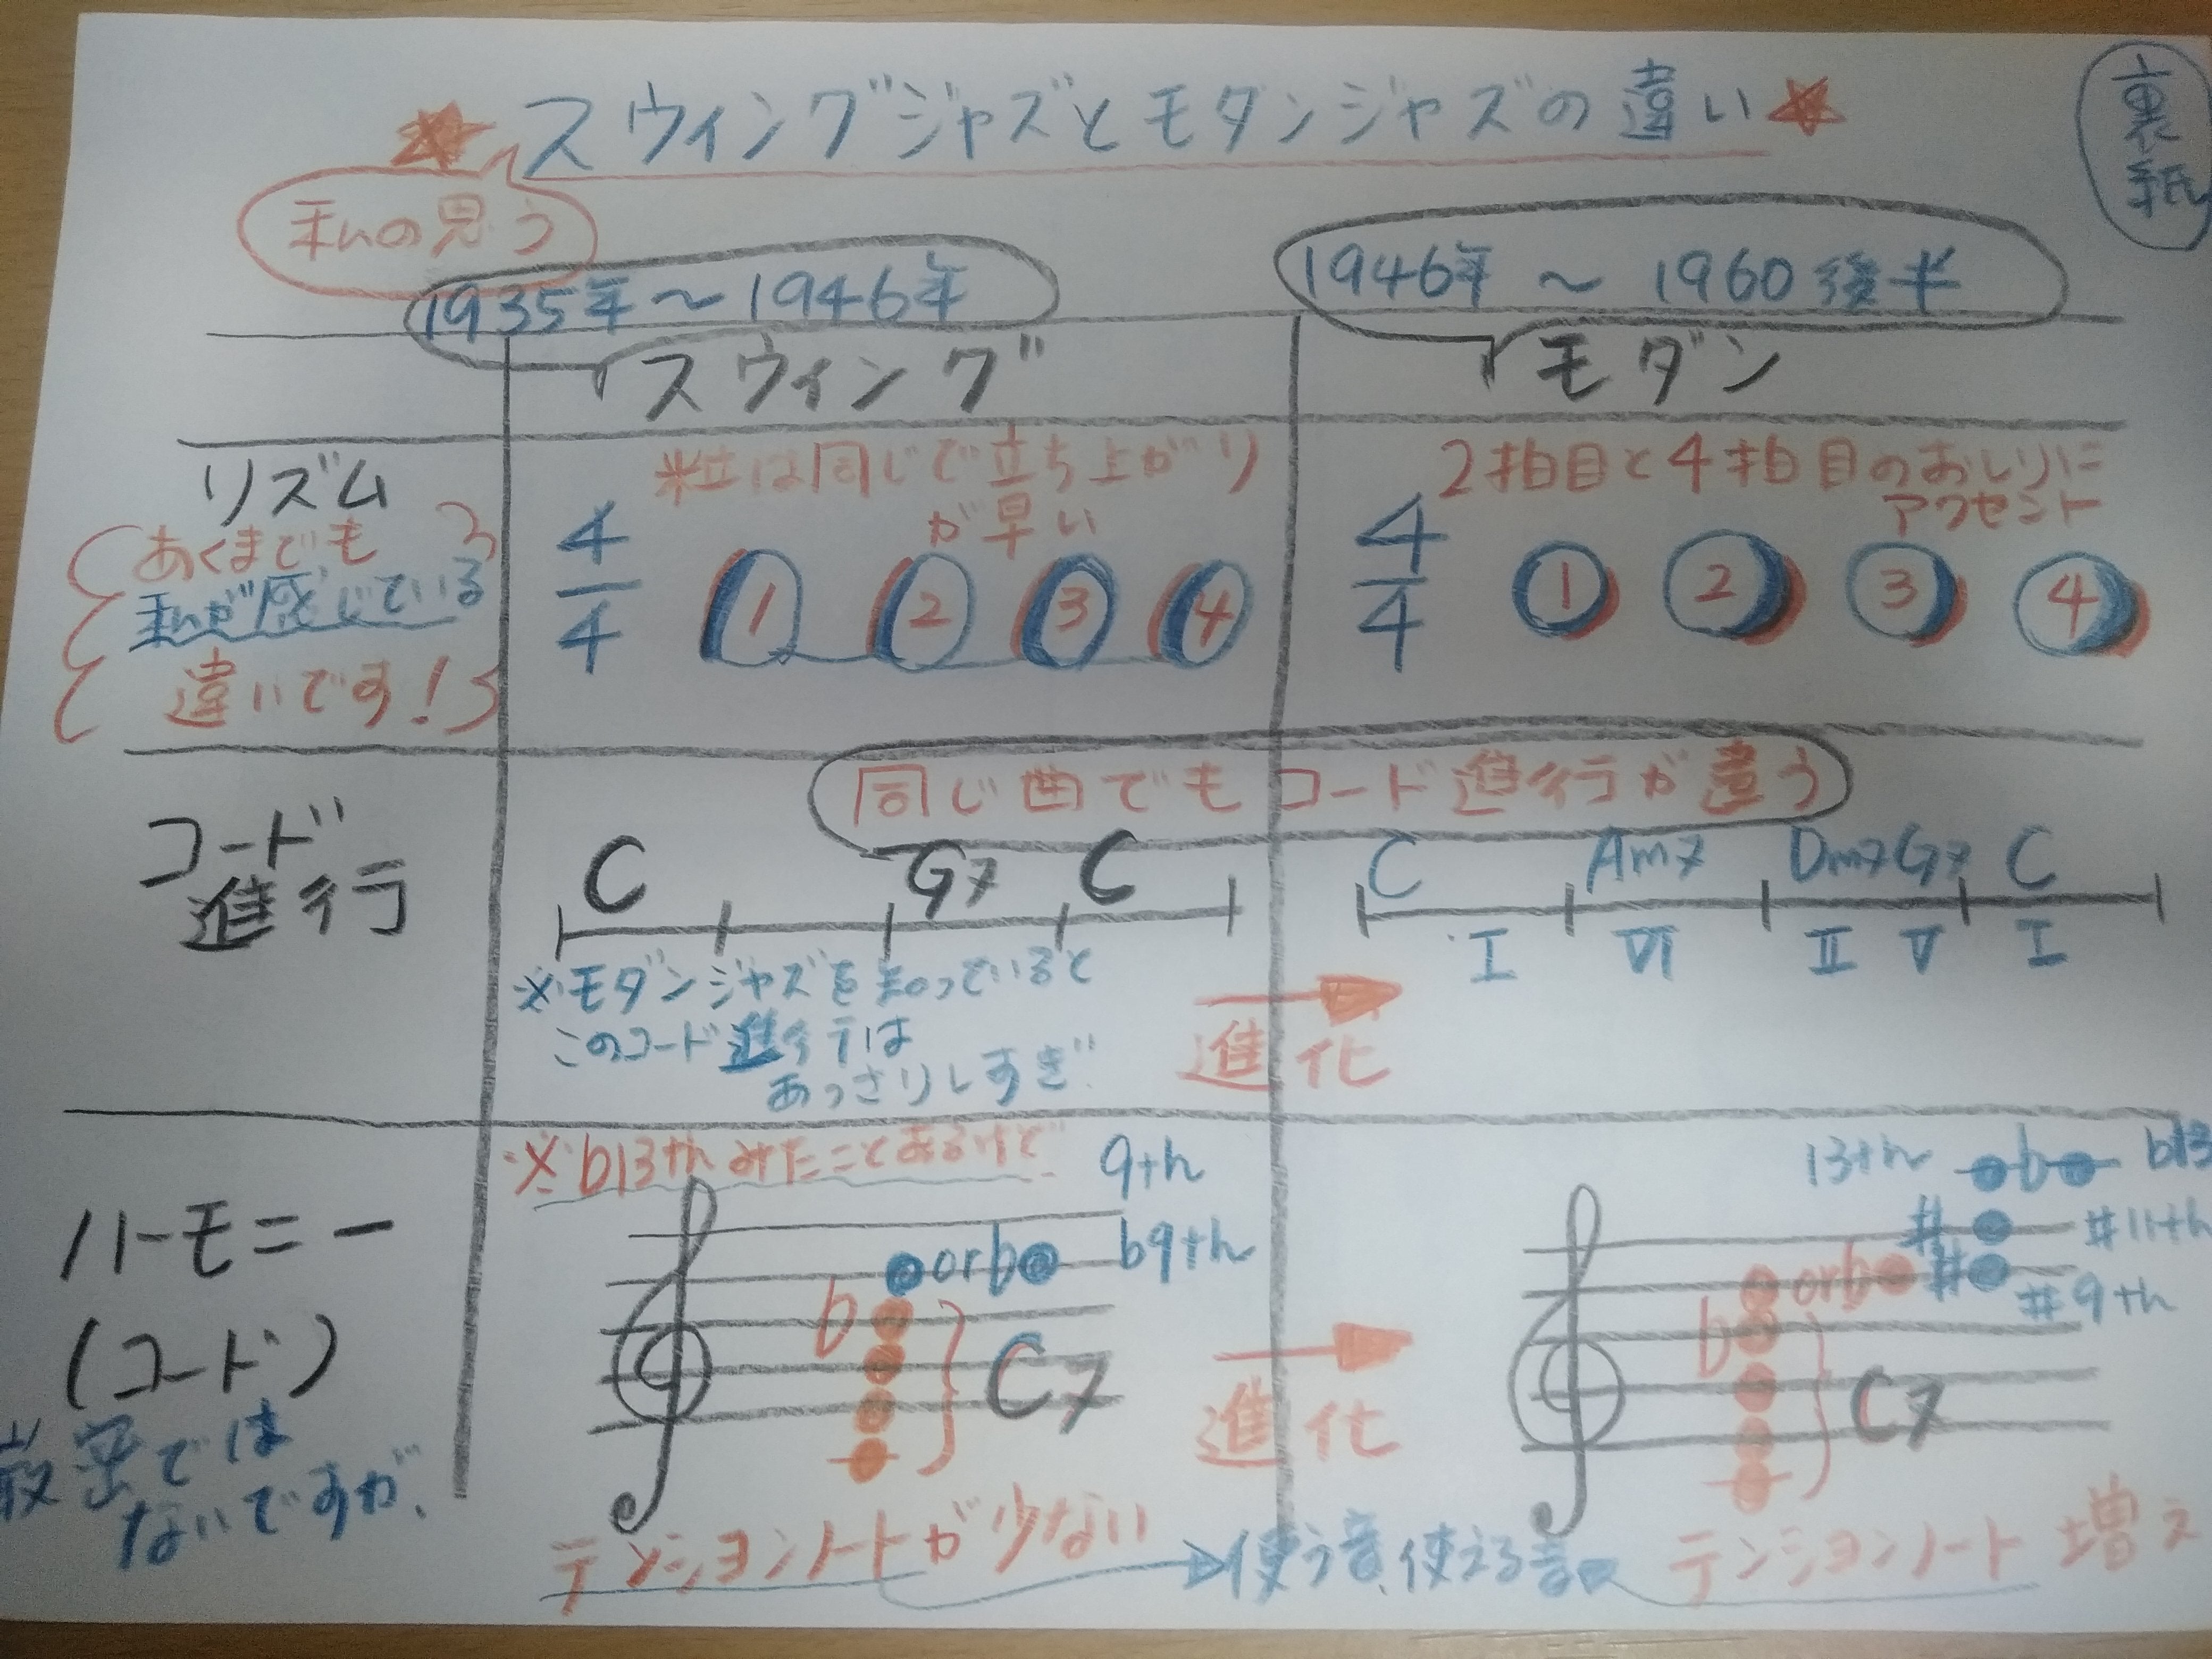 スウィングジャズとモダンジャズの違い
裏紙
私の思う
1935年〜1946年
1946年 〜 1960後半
スウィング
モダン
リズム
あくまでも
私が感じている
違いです!
粒は同じで立ち上がり
が早い
4/4 1 2 3 4
2拍目と4拍目のおしりに
アクセント
4/4 1 2 3 4
コード
進行
同じ曲でもコード進行が違う
C G7 C
※モダンジャズを知っていると
このコード進行は
あっさりしすぎ
進化
C Am7 Dm7 G7 C
I VI II V I
ハーモニー
(コード)
厳密では
ないですが、
※b13thみたことあるけど
9th
or b b9th
b
C7
テンションノートが少ない
進化
使う音、使える音
13th b b13
# #11th
or b # #9th
b
C7
テンションノート増え